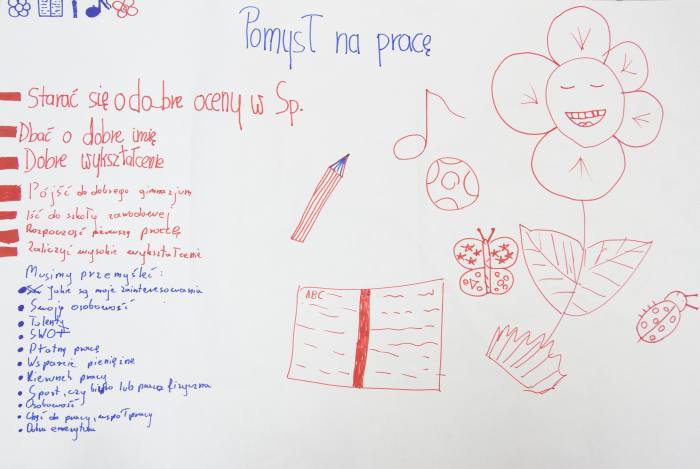 Pomysł na pracę
Starać się o dobre oceny w Sp.
Dbać o dobre imię
Dobre wykształcenie
Pójść do dobrego gimnazjum
Iść do szkoły zawodowej
Rozpocząść pierwszą practę
Zaliczyć wysokie wykształcenie
Musimy przemyśleć:
Jakie są moje zainteresowania
Swoją osobowość
Talenty
SWOT
Płatną pracę
Wsparcie pieniężne
Kierunek pracy
Sport, czy biuro lub praca fizyczna
Osobowość
Chęć do pracy, współpracy
Dobra emerytura
ABC